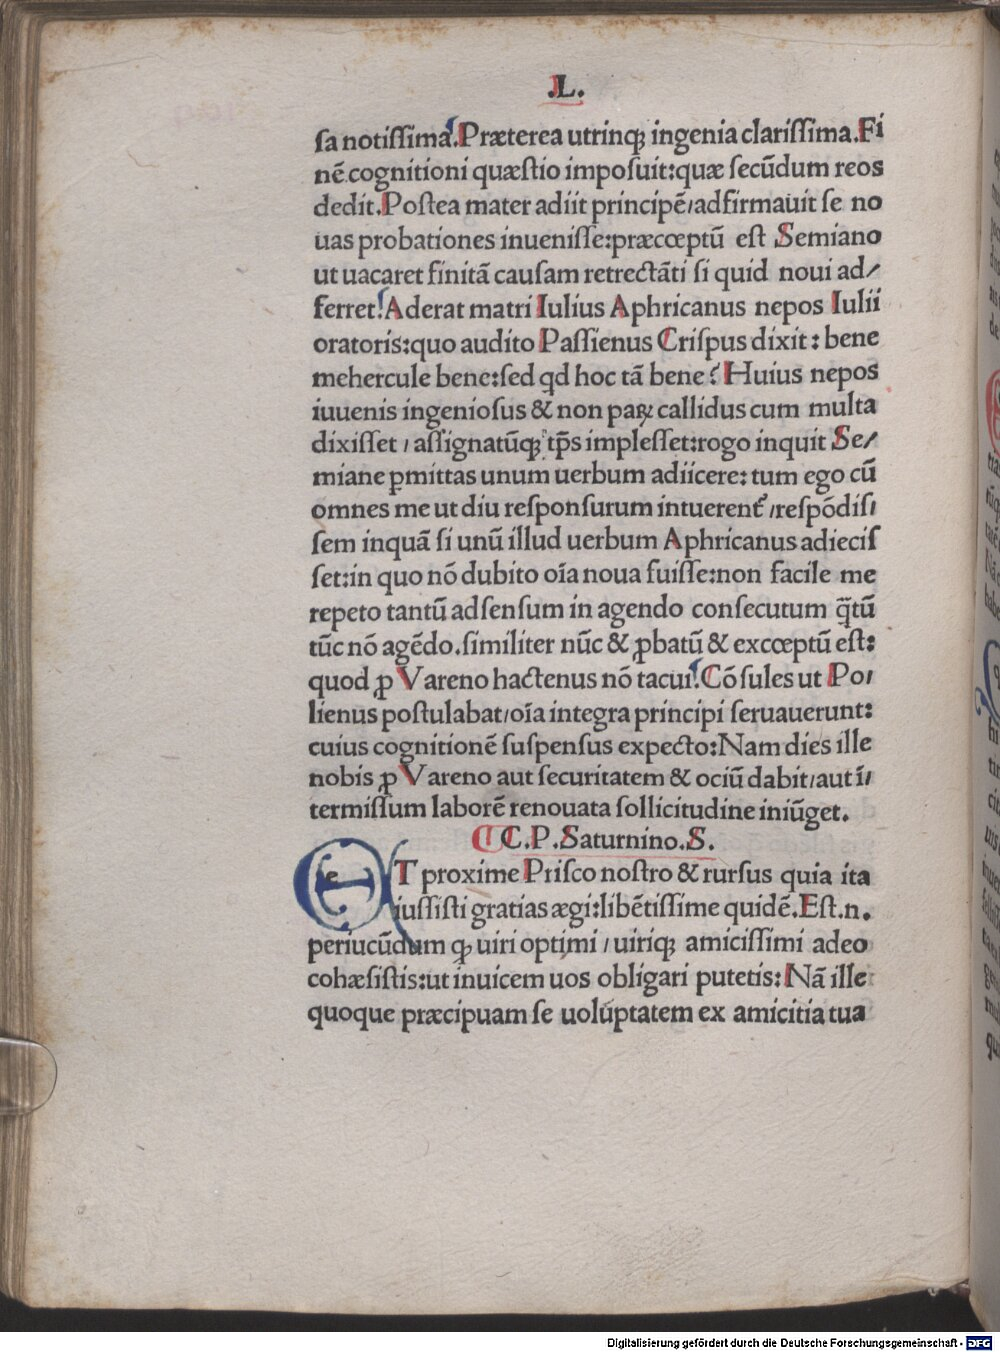 .L.
sa notissima.Præterea utrinqꝫ ingenia clarissima.Fi
nē cognitioni quæstio imposuit:quæ secūdum reos
dedit.Postea mater adiit principē/adfirmauit se no
uas probationes inuenisse:præcœptū est Semiano
ut uacaret finitā causam retrectāti si quid noui ad/
ferret.Aderat matri Iulius Aphricanus nepos Iulii
oratoris:quo audito Passienus Crispus dixit: bene
mehercule bene:sed qd hoc tā bene? Huius nepos
iuuenis ingeniosus & non paꝝ callidus cum multa
dixisset / assignatūqꝫ tp̄s implesset:rogo inquit Se/
miane ꝑmittas unum uerbum adiicere: tum ego cū
omnes me ut diu responsurum intuerent᷑ /respōdis/
sem inquā si unū illud uerbum Aphricanus adiecis
set:in quo nō dubito oīa noua fuisse:non facile me
repeto tantū adsensum in agendo consecutum q̄tū
tūc nō agēdo.similiter nūc & ꝓbatū & excœptū est:
quod ꝓ Vareno hactenus nō tacui.Cōsules ut Po/
lienus postulabat/oīa integra principi seruauerunt:
cuius cognitionē suspensus expecto:Nam dies ille
nobis ꝓ Vareno aut securitatem & ociū dabit/aut ī/
termissum laborē renouata sollicitudine iniūget.
C.P.Saturnino.S.
eT proxime Prisco nostro & rursus quia ita
iussisti gratias ægi:libētissime quidē.Est.n.
periucūdum qꝫ uiri optimi / uiriqꝫ amicissimi adeo
cohæsistis:ut inuicem uos obligari putetis:Nā ille
quoque præcipuam se uoluptatem ex amicitia tua
Digitalisierung gefördert durch die Deutsche Forschungsgemeinschaft - DFG